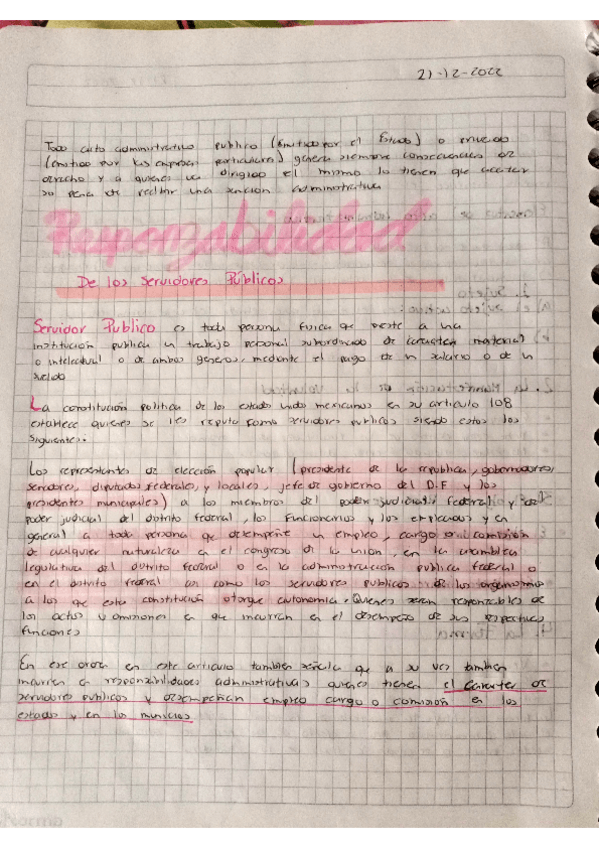 21-12-2022
Todo acto administrativo publico (Emitido por el Estado) o privado
(emitido por las empresas particulares) genera siempre consecuencias de
derecho y a quienes va dirigido el mismo lo tienen que acatar
so pena de recibir una sancion administrativa
Responzabilidad
De los Servidores Públicos
Servidor Publico es toda persona fisica que preste a una
institución publica un trabajo personal subordinado de caracter material
o intelectual o de ambos generos, mediante el pago de un salario o de un
sueldo
La constitución politica de los estados unidos mexicanos en su articulo 108
establece quienes se les reputa como servidores publicos siendo estos los
siguientes:
Los representantes de elección popular (presidente de la republica, gobernadores,
senadores, diputados federales, y locales, jefe de gobierno del D.F y los
presidentes municipales) a los miembros del poder judicial federal y del
poder judicial del distrito federal, los funcionarios y los empleados y en
general a toda persona que desempeñe un empleo, cargo o comisión
de cualquier naturaleza en el congreso de la union, en la asamblea
legislativa del distrito federal o en la administración publica federal o
en el distrito federal asi como los servidores publicos de los organismos
a los que esta constitución otorgue autonomia. Quienes seran responsables de
los actos y omisiones en que incurran en el desempeño de sus respectivas
funciones
En ese orden en este articulo tambien señala que a su vez tambien
incurren en responsabilidades administrativas quienes tienen el Caracter de
servidores publicos y desempeñan empleo cargo o comisión en los
estados y en los municios
Norma